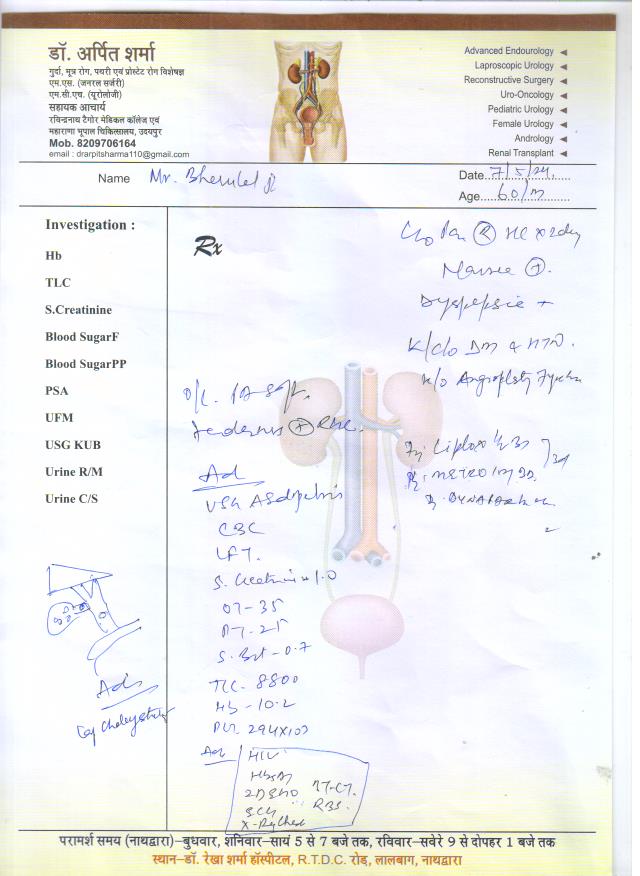 डॉ. अर्पित शर्मा
गुर्दा, मूत्र रोग, पथरी एवं प्रोस्टेट रोग विशेषज्ञ
एम.एस. (जनरल सर्जरी)
एम.सी.एच. (यूरोलोजी)
सहायक आचार्य
रविन्द्रनाथ टैगोर मेडिकल कॉलेज एवं
महाराणा भूपाल चिकित्सालय, उदयपुर
Mob. 8209706164
email : drarpitsharma110@gmail.com
Advanced Endourology
Laproscopic Urology
Reconstructive Surgery
Uro-Oncology
Pediatric Urology
Female Urology
Andrology
Renal Transplant
Name Mr. Bherulal
Date 7/5/24
Age 60/m
Investigation :
Hb
TLC
S.Creatinine
Blood SugarF
Blood SugarPP
PSA
UFM
USG KUB
Urine R/M
Urine C/S
Rx
C/o Pain R
Nausea +
Dyspepsia +
K/c/o DM & HTN.
H/o Angioplasty
O/E. PA soft,
Tenderness +
Adv
USG
CBC
LFT.
S. Creatinine 1.0
OT-35
PT-25
0.7
TLC. 8800
Hb - 10.2
Adv
HIV
HbsAg
2D ECHO
BT-CT.
RBS.
X-Ray Chest
METRO
Adv
परामर्श समय (नाथद्वारा)–बुधवार, शनिवार–सायं 5 से 7 बजे तक, रविवार–सवेरे 9 से दोपहर 1 बजे तक
स्थान–डॉ. रेखा शर्मा हॉस्पीटल, R.T.D.C. रोड़, लालबाग, नाथद्वारा